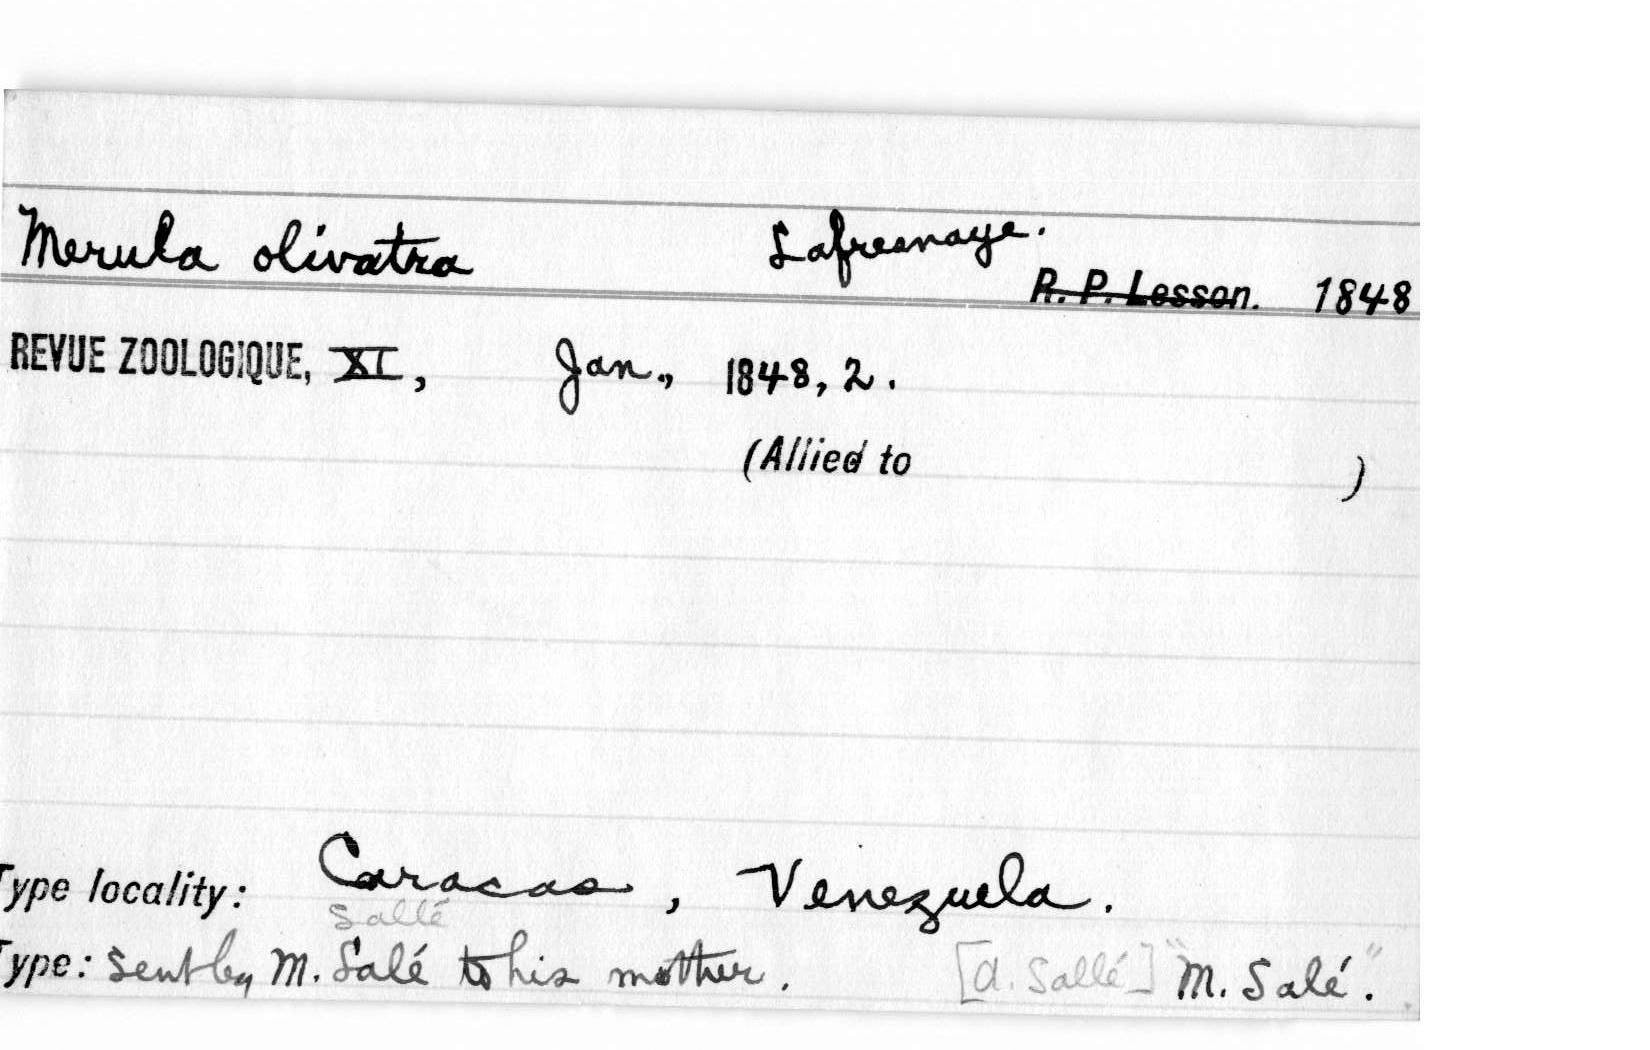 Merula olivatra Lafresnaye.
R. P. Lesson. 1848
REVUE ZOOLOGIQUE, XI, Jan., 1848, 2.
(Allied to )
Type locality: Caracas, Venezuela.
Sallé
Type: Sent by M. Salé to his mother. [A. Sallé] "M. Salé".